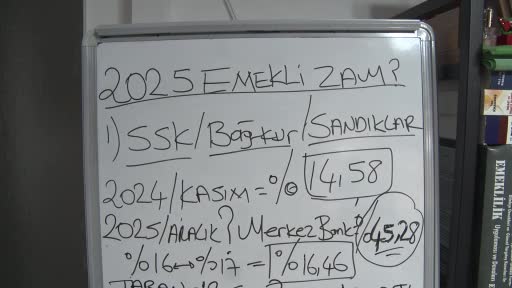 2025 EMEKLİ ZAM?
1) SSK/Bağ-kur/SANDIKLAR
2024/KASIM = %0 14,58
2025/ARALIK? Merkez Bank? %45,28
%16 ↔ %17 = %16,46
EMEKLİLİK